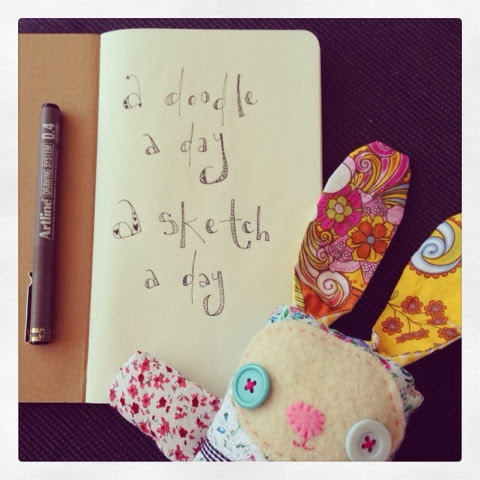 a doodle
a day
a sketch
a day
Artline DRAWING SYSTEM 0.4